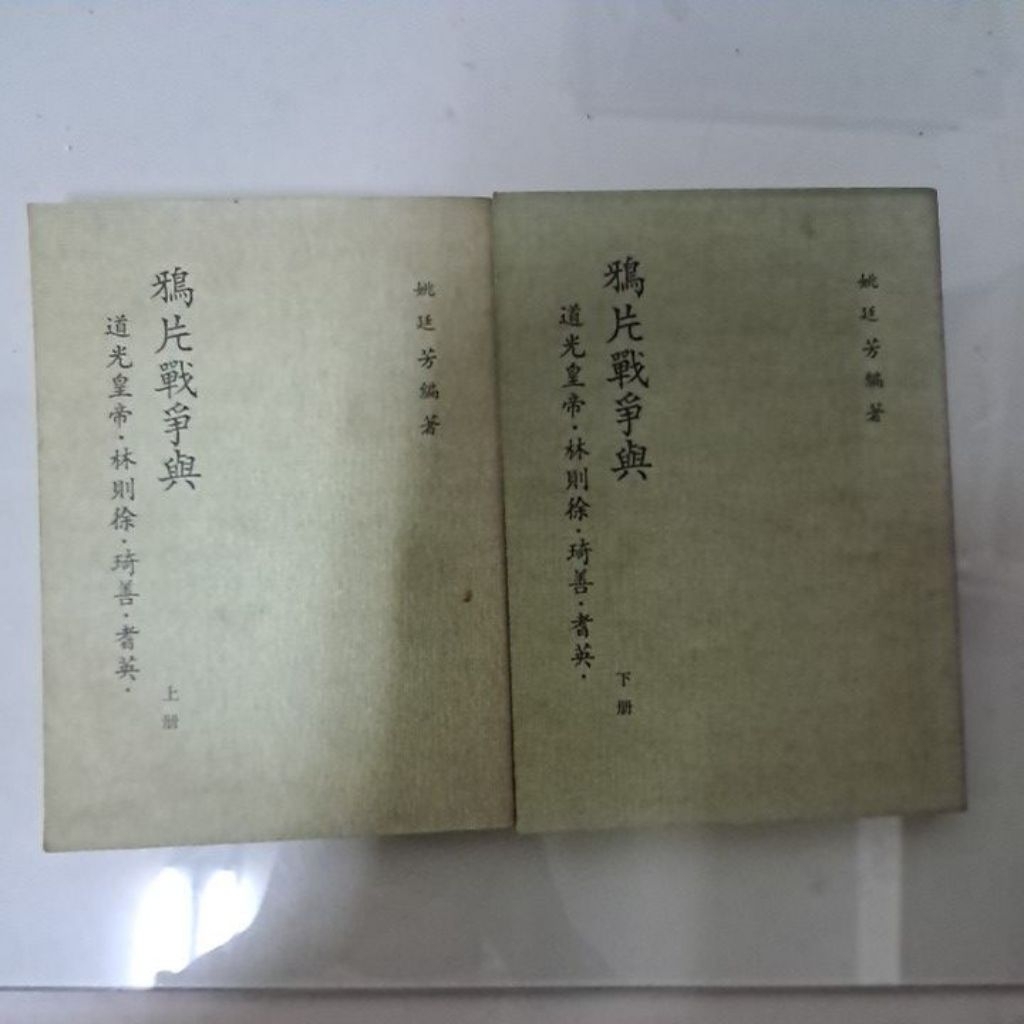 姚廷芳編著
鴉片戰爭與
道光皇帝·林則徐·琦善·耆英·
上册
姚廷芳編著
鴉片戰爭與
道光皇帝·林則徐·琦善·耆英·
下册